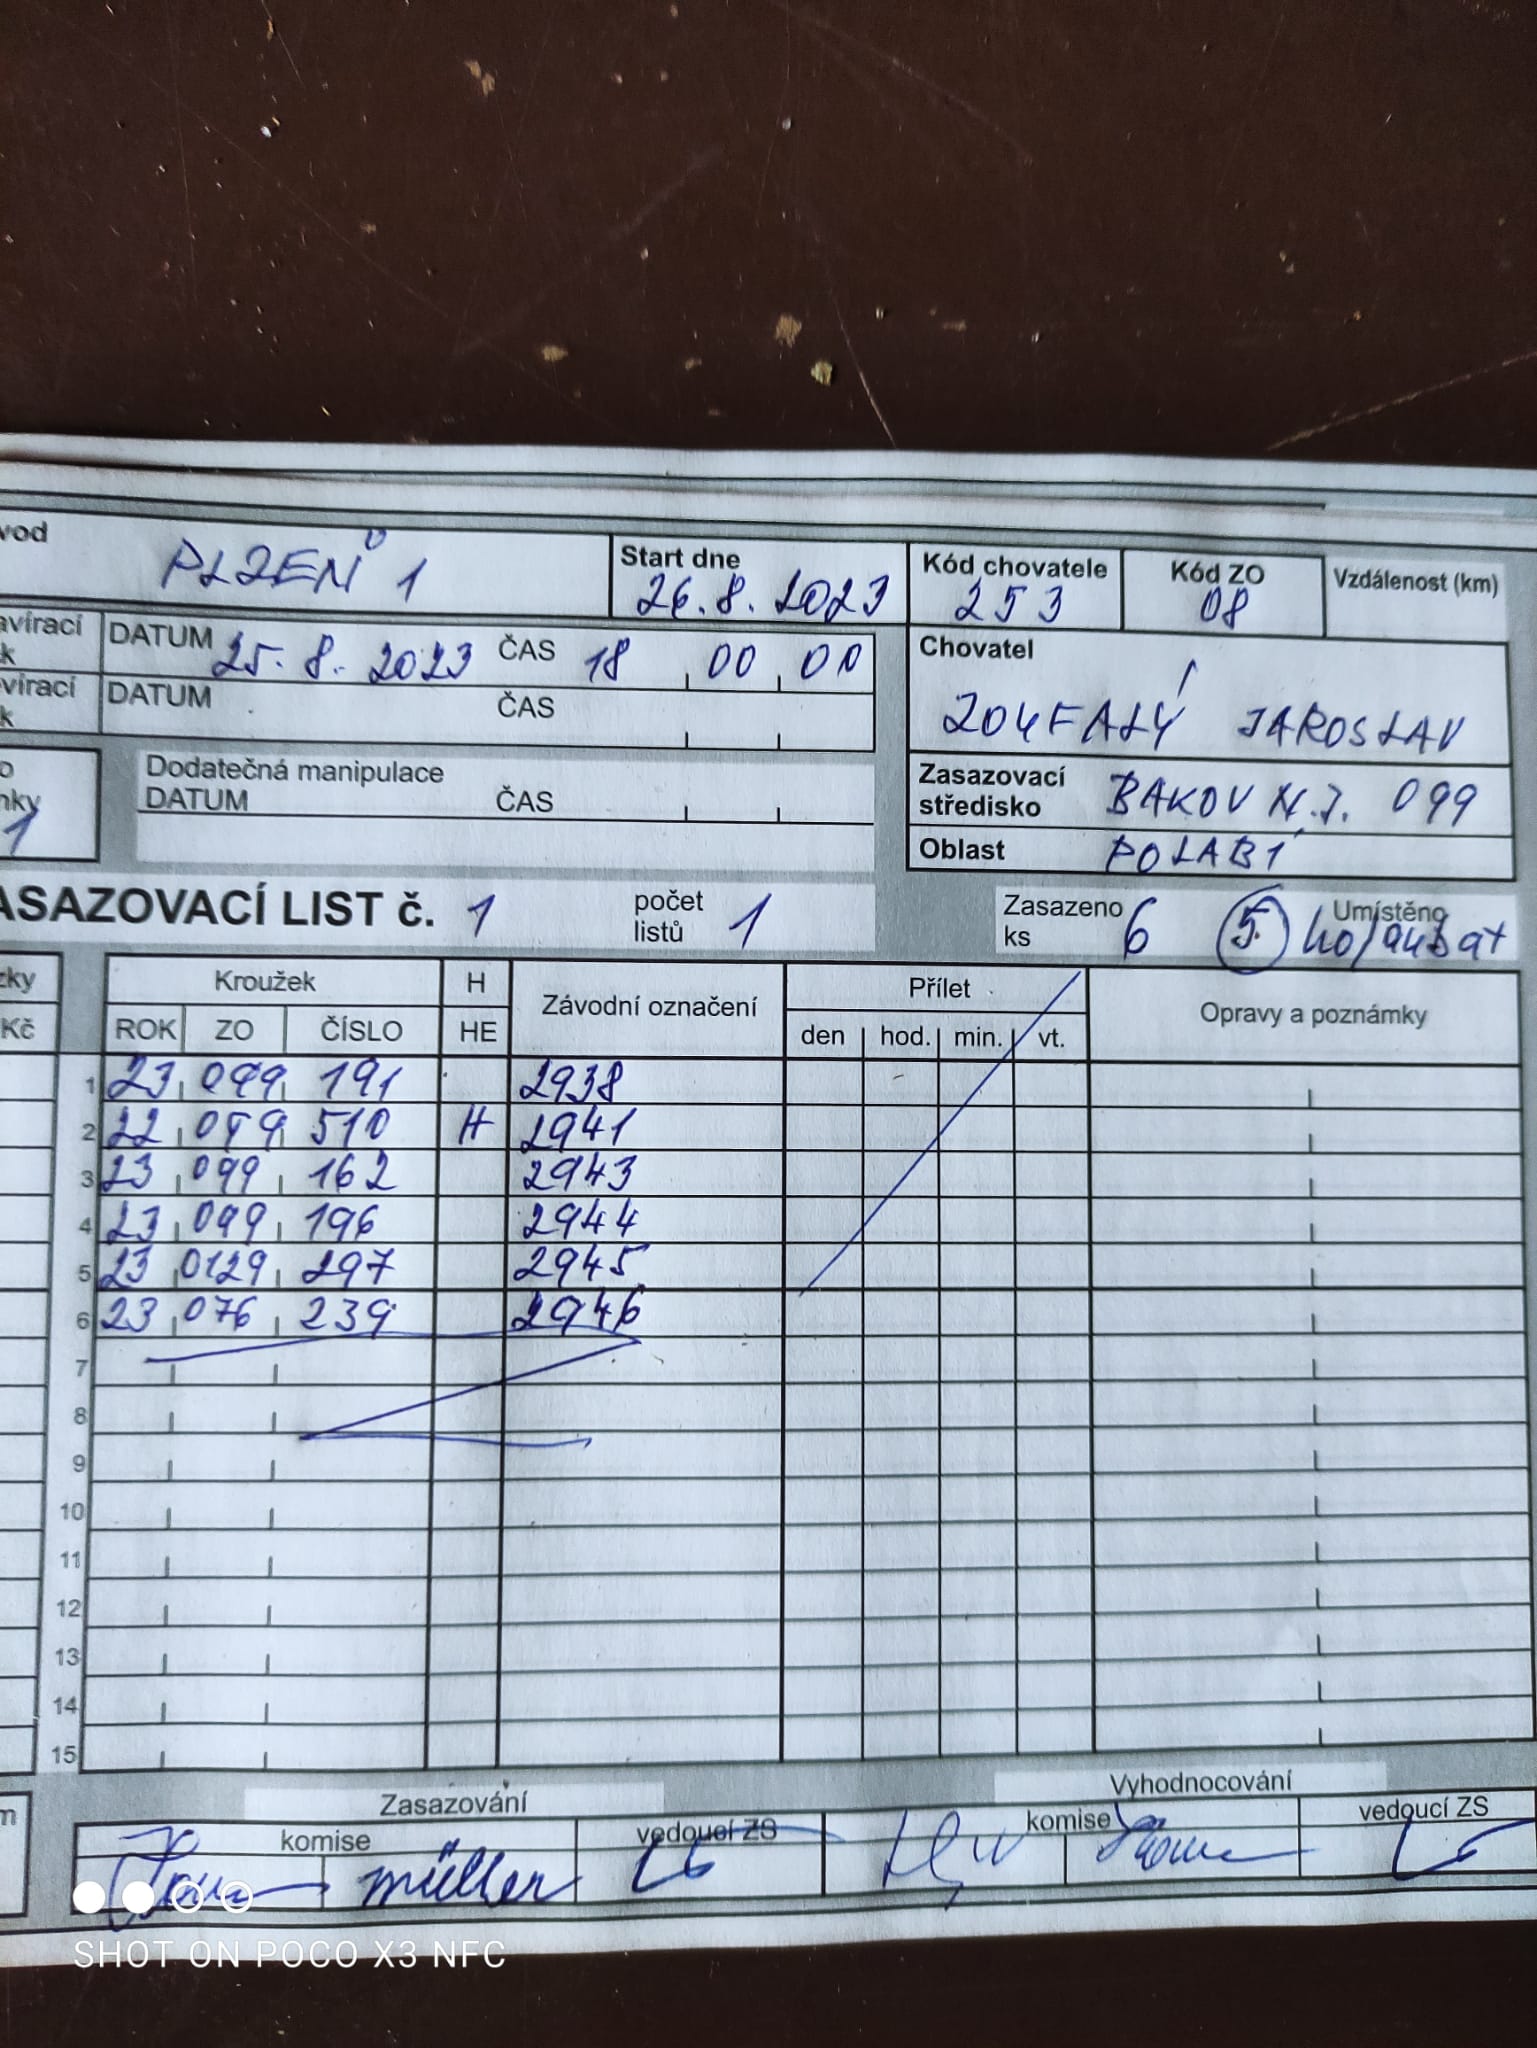 vod PLZEŇ 1 Start dne 26.8.2023 Kód chovatele 253 Kód ZO 08 Vzdálenost (km)
avírací k DATUM 25.8.2023 ČAS 18 00 00 Chovatel
vírací k DATUM ČAS ZOUFALÝ JAROSLAV
o nky 1 Dodatečná manipulace Zasazovací středisko BAKOV N.J. 099
DATUM ČAS
Oblast POLABÍ
ASAZOVACÍ LIST č. 1 počet listů 1 Zasazeno ks 6 5. Umístěno holoubat
zky Kroužek H Závodní označení Přílet Opravy a poznámky
Kč ROK ZO ČÍSLO HE den hod. min. vt.
1 23 099 191 2938
2 22 099 510 H 2941
3 23 099 162 2943
4 23 099 196 2944
5 23 0129 297 2945
6 23 076 239 2946
7
8
9
10
11
12
13
14
15
m Zasazování Vyhodnocování
komise vedoucí ZS komise vedoucí ZS
müller
SHOT ON POCO X3 NFC